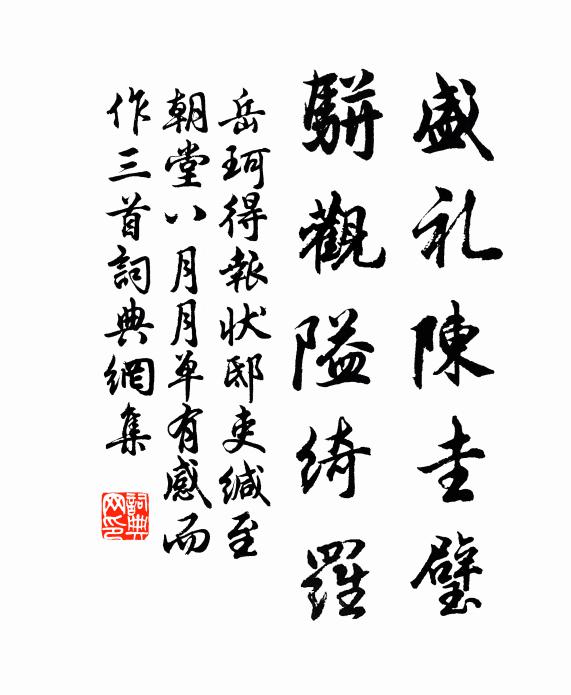 盛礼陳圭璧
駢觀隘綺羅
岳珂得報狀邸吏緘至
朝堂八月月单有感而
作三首詞典網集
詞典网印